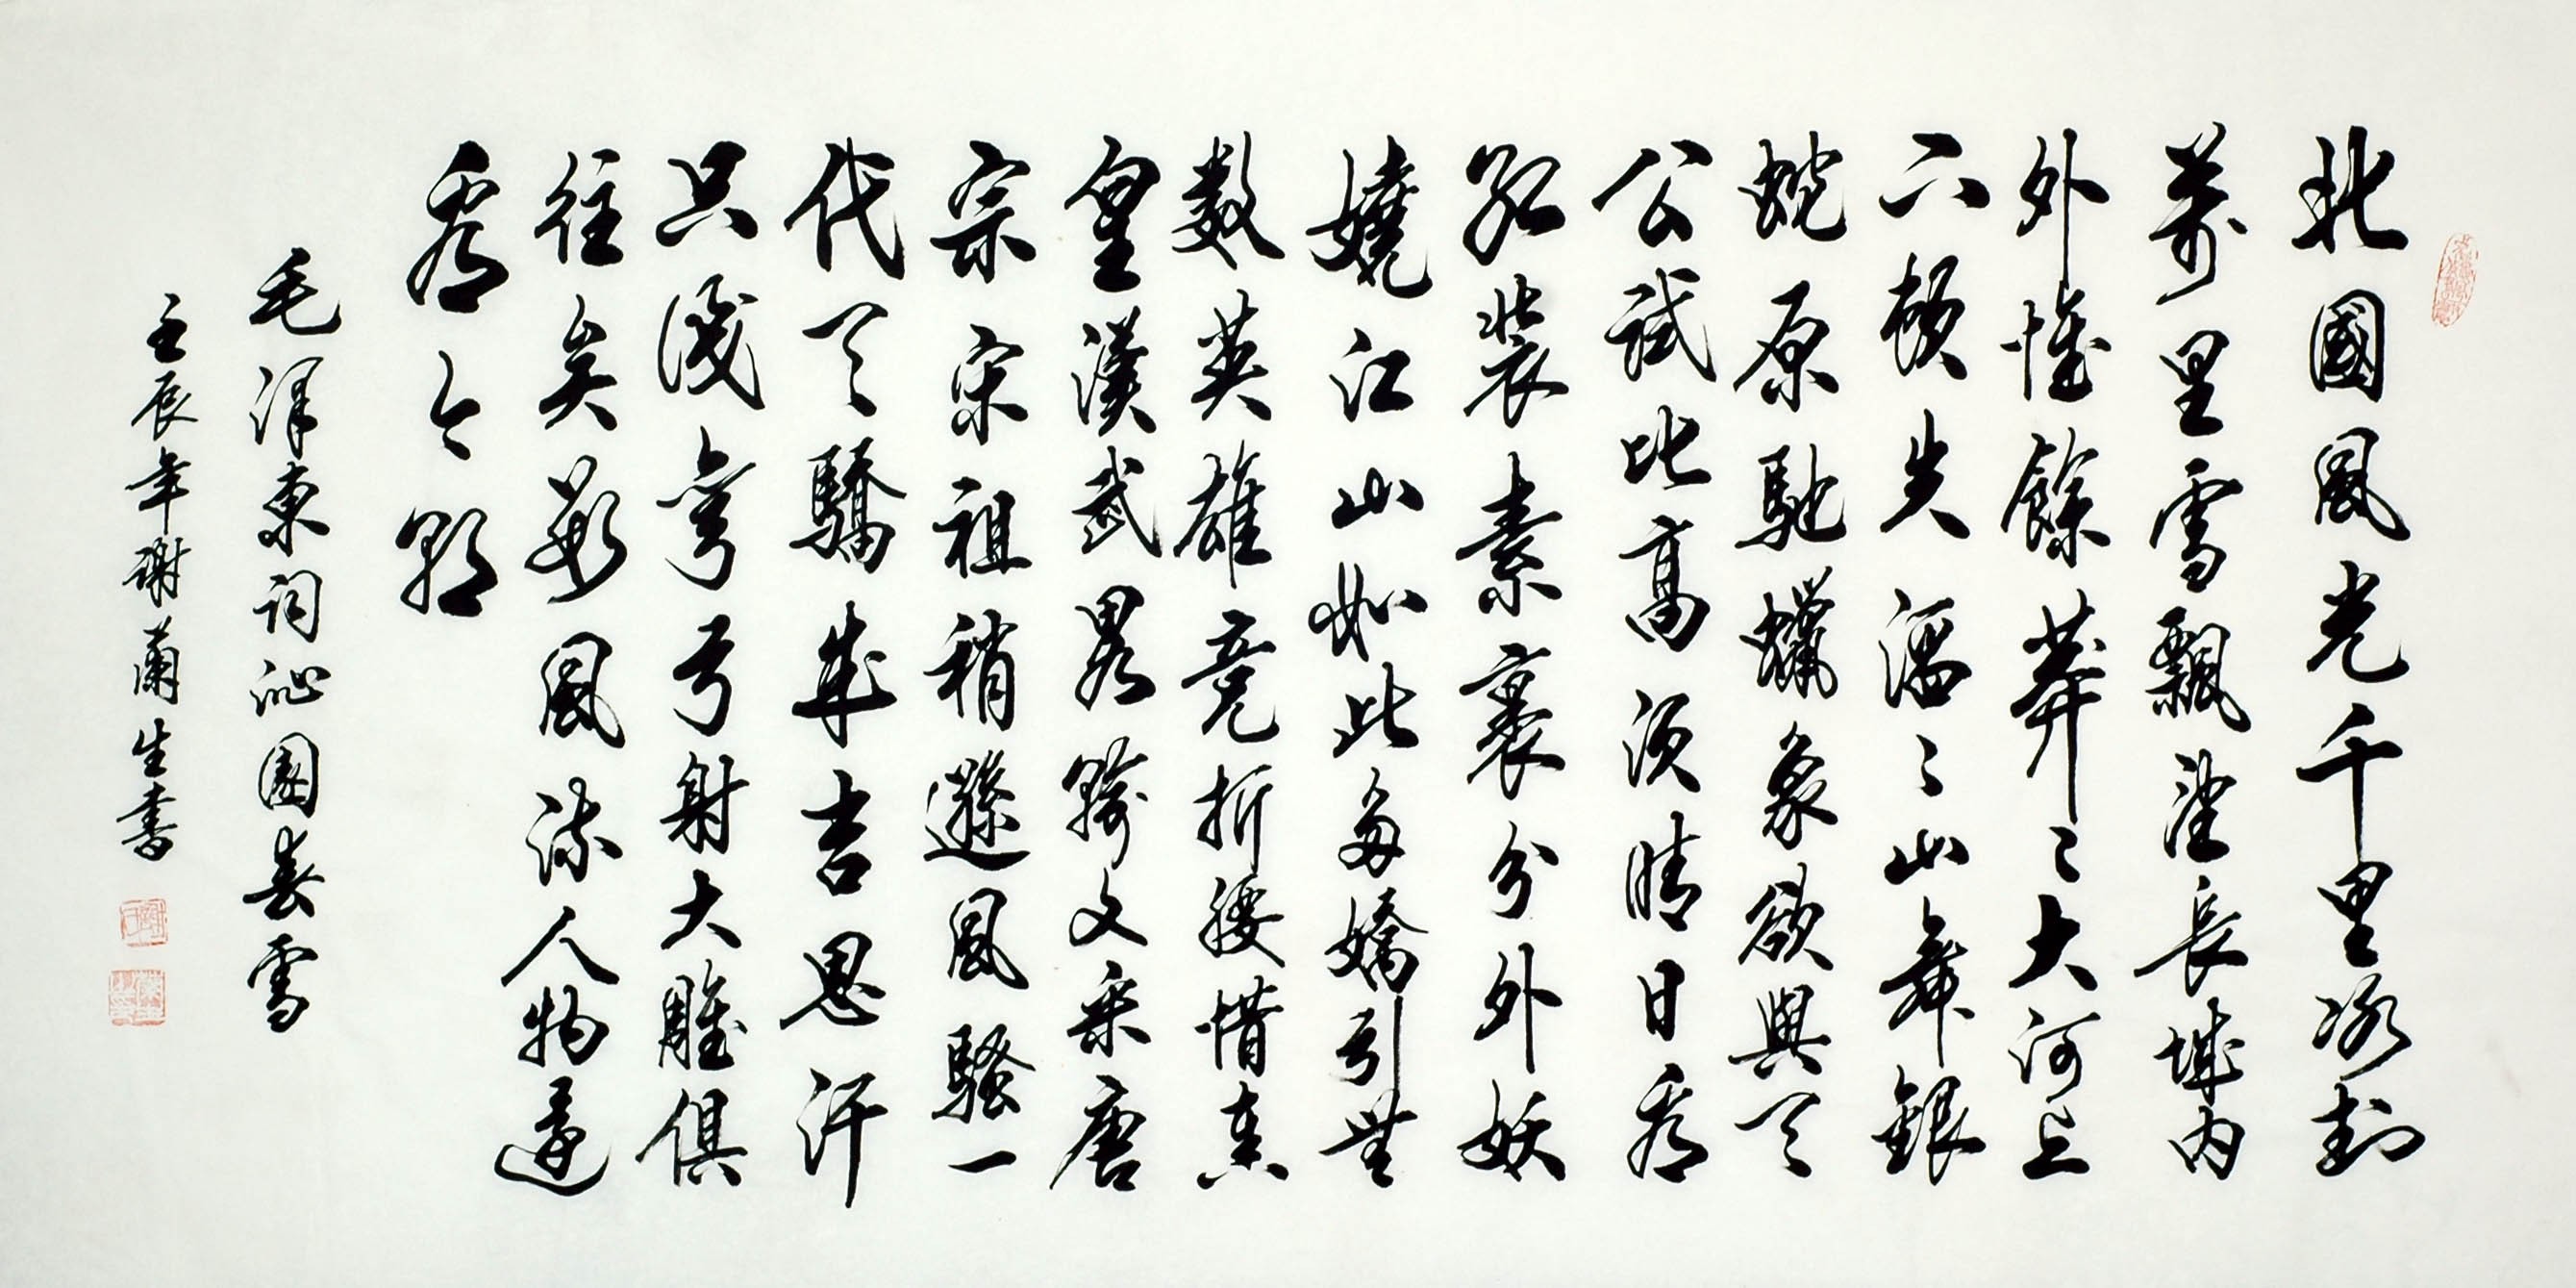 北國風光千里冰封
萬里雪飄望長城內
外惟餘莽々大河上
下頓失滔々山舞銀
蛇原馳蠟象欲與天
公試比高須晴日看
紅裝素裹分外妖
嬈江山如此多嬌引無
數英雄競折腰惜秦
皇漢武畧輸文采唐
宗宋祖稍遜風騷一
代天驕成吉思汗
只識彎弓射大雕俱
往矣數風流人物還
看今朝
毛澤東詞沁園春雪
壬辰年謝蘭生書